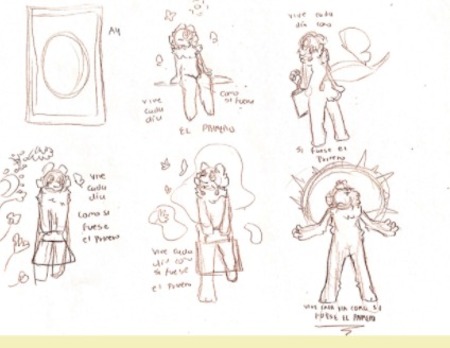 A4
vive cada día
como si fuese
EL PRIMERO
vive cada
día como
si fuese el
Primero
vive
cada
día
como si
fuese
el Primero
vive cada
día como
si fuese
el Primero
vive cada día como si
fuese el PRIMERO